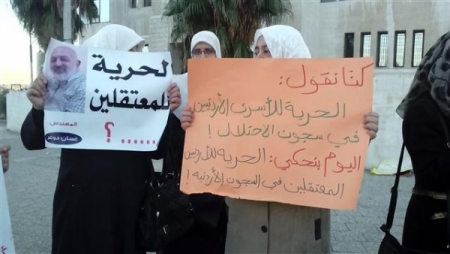 الحرية
للمعتقلين
......؟
المهندس
غسان دوعر
كنا نقول :
الحرية للأسرى الأردنيين
في سجون الاحتلال !
اليوم بنحكي : الحرية للأردنيين
المعتقلين في السجون الأردنية !